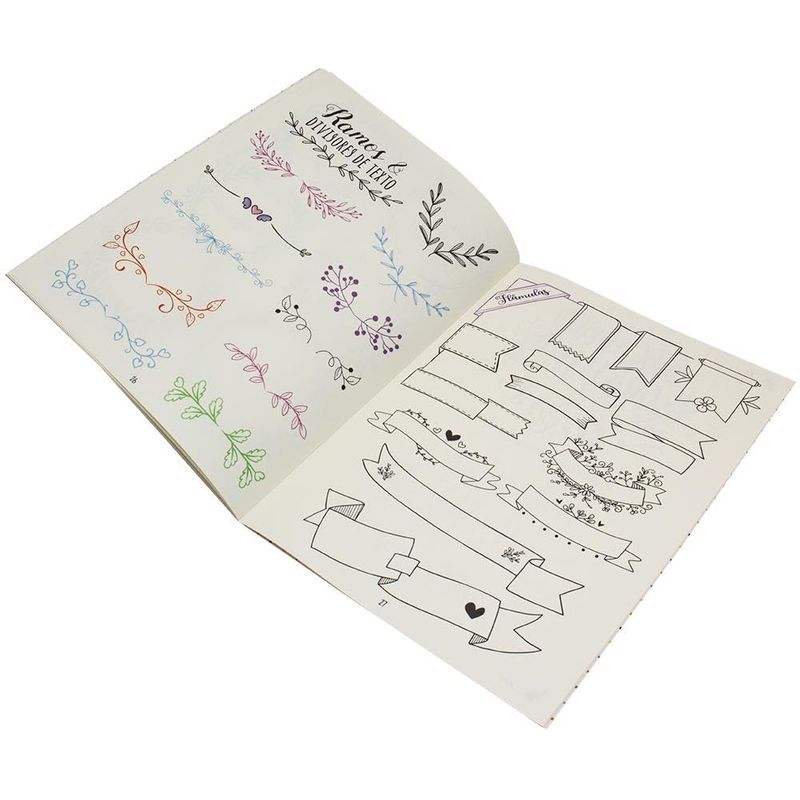 Ramos &
DIVISORES DE TEXTO
26
Flâmulas
27